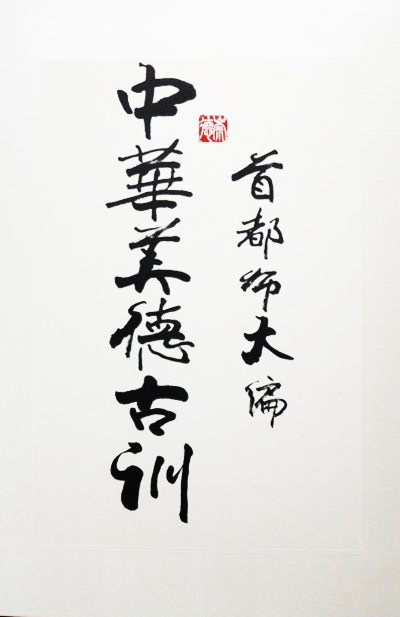 中華美德古训
首都师大编